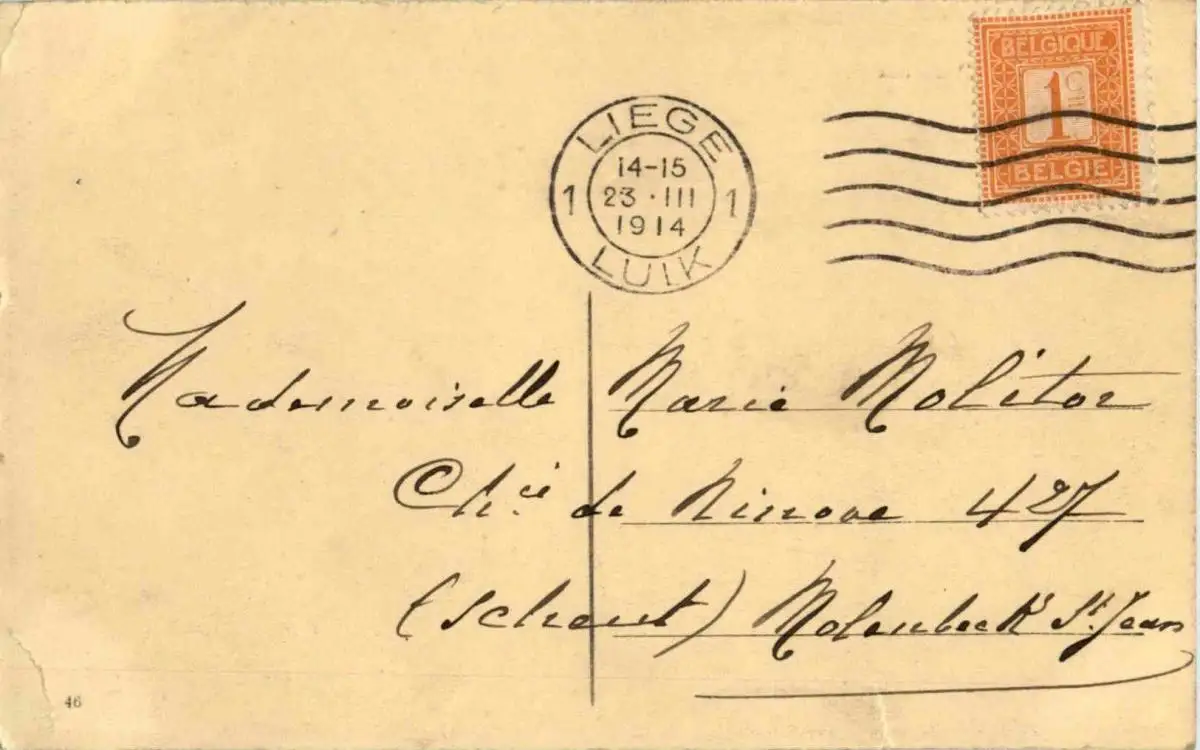 BELGIQUE
1c
BELGIE
LIEGE
1 14-15 1
23 · III
1914
LUIK
Mademoiselle Marie Molitor
Ch.ée de Ninove 427
(Scheut) Molenbeek St. Jean
46